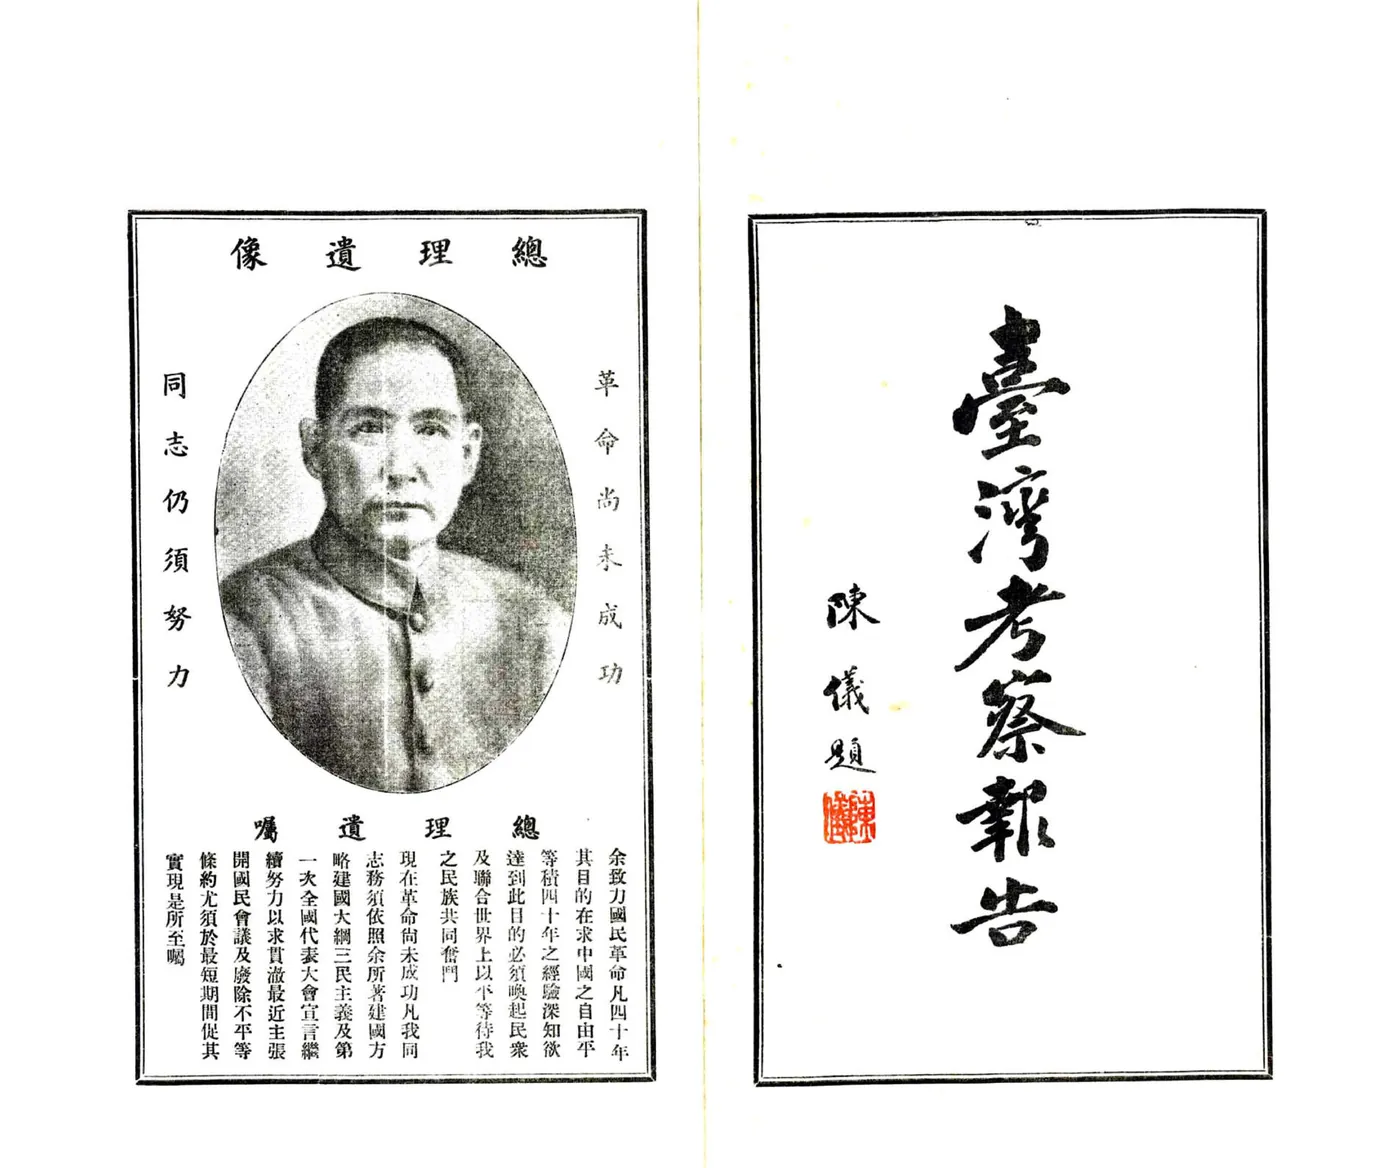 臺灣考察報告
陳儀題
陳儀
總理遺像
革命尚未成功
同志仍須努力
總理遺囑
余致力國民革命凡四十年
其目的在求中國之自由平
等積四十年之經驗深知欲
達到此目的必須喚起民衆
及聯合世界上以平等待我
之民族共同奮鬥
現在革命尚未成功凡我同
志務須依照余所著建國方
略建國大綱三民主義及第
一次全國代表大會宣言繼
續努力以求貫澈最近主張
開國民會議及廢除不平等
條約尤須於最短期間促其
實現是所至囑